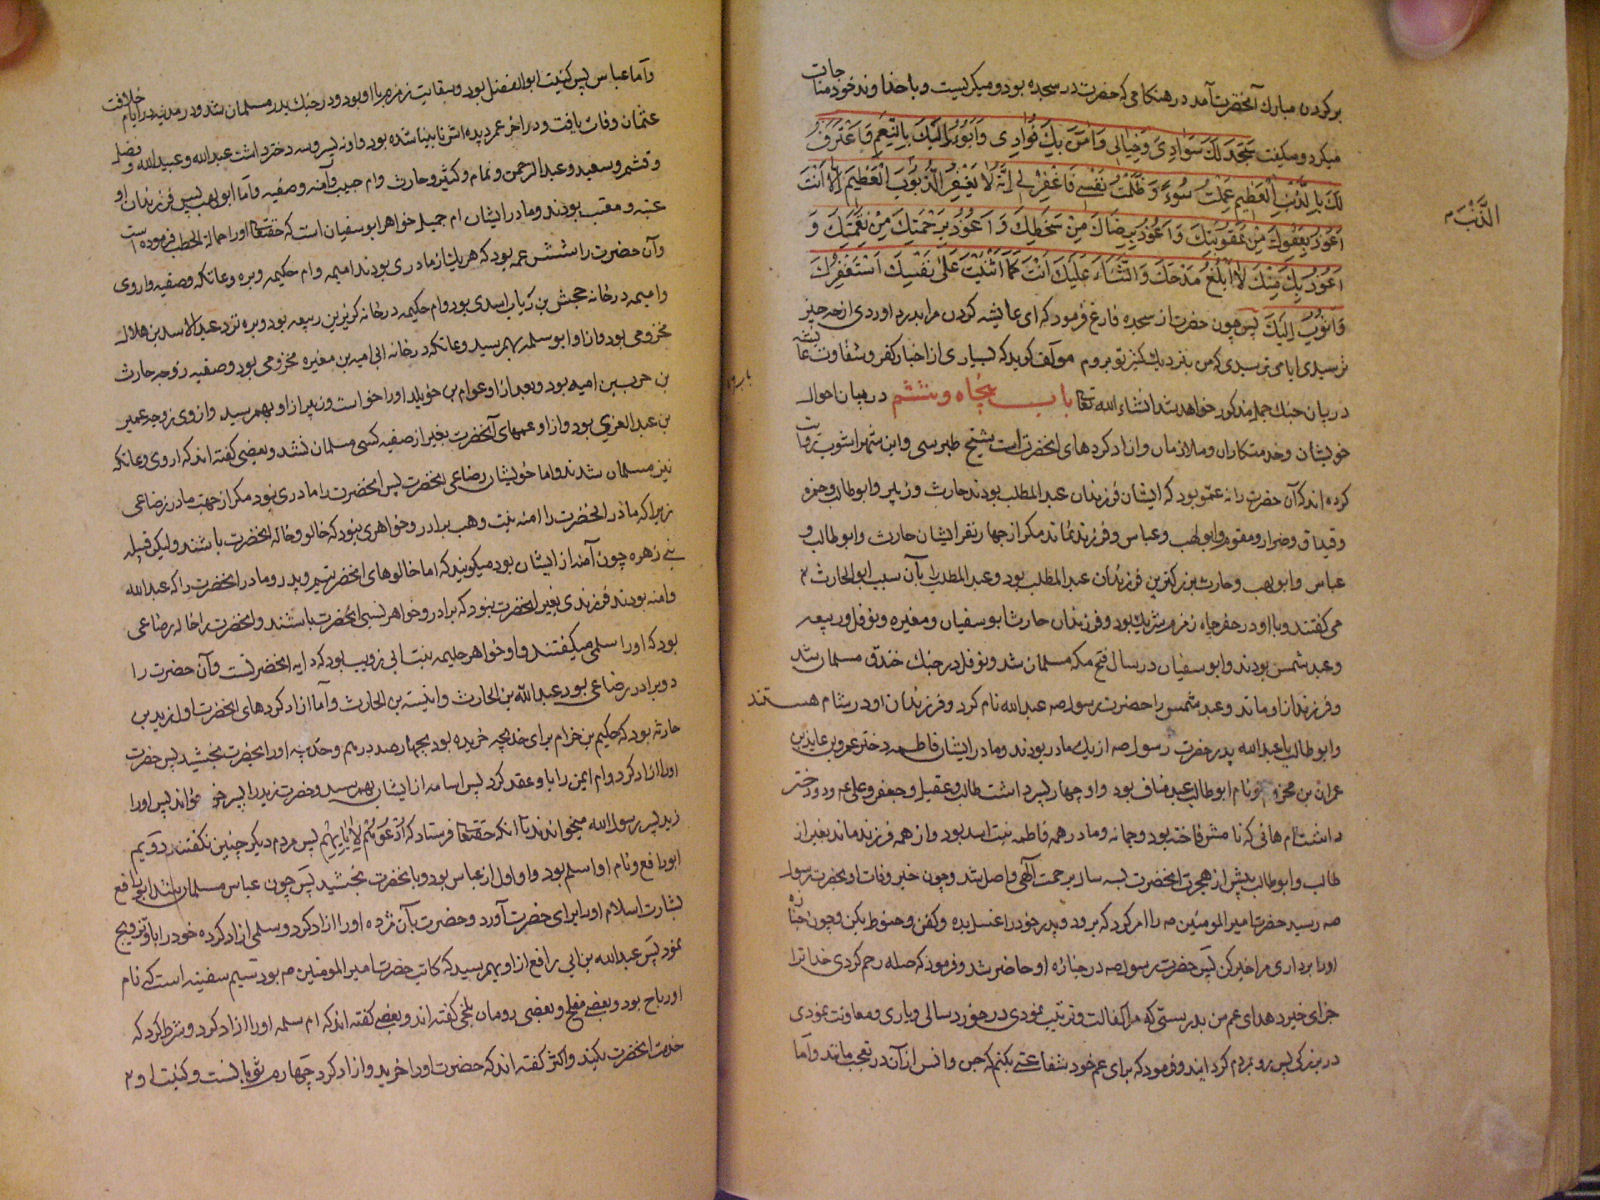 بر کردن مبارك آنحضرت آمد در هنکامی که حضرت در سجده بود و میکریست و با خداوند خود مناجات
میکرد و میکفت سَجَدَ لَكَ سَوَادِي وَخَيَالِي وَآمَنَ بِكَ فُؤَادِي وَأَبُوءُ إِلَيْكَ بِالنِّعَمِ وَأَعْتَرِفُ
لَكَ بِالذَّنْبِ الْعَظِيمِ عَمِلْتُ سُوءً وَظَلَمْتُ نَفْسِي فَاغْفِرْ لِي إِنَّهُ لَا يَغْفِرُ الذُّنُوبَ الْعَظِيمَ إِلَّا أَنْتَ
الذَّنْبَ م
أَعُوذُ بِعَفْوِكَ مِنْ عُقُوبَتِكَ وَأَعُوذُ بِرِضَاكَ مِنْ سَخَطِكَ وَأَعُوذُ بِرَحْمَتِكَ مِنْ نِقْمَتِكَ وَ
أَعُوذُ بِكَ مِنْكَ لَا أَبْلُغُ مَدْحَكَ وَالثَّنَاءَ عَلَيْكَ أَنْتَ كَمَا أَثْنَيْتَ عَلَى نَفْسِكَ أَسْتَغْفِرُكَ
وَأَتُوبُ إِلَيْكَ پس چون حضرت از سجده فارغ فرمود که ای عایشه کردن مرا بدرد اوردی از چه چیز
ترسیدی ایا می ترسیدی که من بنزدیك کنیز تو بروم مولف کوید که بسیاری از اخبار کفر و شقاوت عایشه
در بیان جنك جمل مذکور خواهد شد انشاء الله تعالی باب پنجاه و ششم در بیان احوال
خویشان و خدمتکاران و ملازمان و ازاد کرده‌های انحضرت است شیخ طبرسی و ابن شهراشوب روایت
کرده اند که آن حضرت را نه عمو بود که ایشان فرزندان عبد المطلب بودند حارث و زبیر و ابو طالب و حمزه
و غیداق و ضرار و مقوم و ابو لهب و عباس و فرزند نماند مکر از چهار نفر ایشان حارث و ابو طالب و
عباس و ابو لهب و حارث بزرکترین فرزندان عبد المطلب بود و عبد المطلب را بآن سبب ابو الحارث
می کفتند و با او در حفر چاه زمزم شریك بود و فرزندان حارث ابو سفیان و مغیره و نوفل و ربیعه
و عبد شمس بودند و ابو سفیان در سال فتح مکه مسلمان شد و نوفل در جنك خندق مسلمان شد
و فرزندان او ماند و عبد شمس را حضرت رسول صه عبد الله نام کرد و فرزندان او در شام هستند
و ابو طالب با عبد الله پدر حضرت رسول صه از یك مادر بودند و مادر ایشان فاطمه دختر عمرو بن عایذ بن
عمران بن مخزوم و نام ابو طالب عبد مناف بود و او چهار پسر داشت طالب و عقیل و جعفر و علی ع و دو دختر
داشت ام هانی که نامش فاخته بود و جمانه و مادر همه فاطمه بنت اسد بود و از همه فرزند ماند بغیر از
طالب و ابو طالب پیش از هجرت انحضرت بسه سال برحمت آلهی واصل شد و چون خبر وفات او بحضرت رسول
صه رسید حضرت امیر المومنین صه را امر کرد که برو و پدر خود را غسل بده و کفن و حنوط بکن و چون جنازه
اورا برداری مرا خبر کن پس حضرت رسول صه در جنازه او حاضر شد و فرمود که صله رحم کردی خدا ترا
جزای خیر دهد ای عم من بدرستی که مرا کفالت و تربیت نمودی در خورد سالی و یاری و معاونت نمودی
در بزرکی پس رو بمردم کردانید و فرمود که برای عم خود شفاعتی بکنم که جن و انس از آن در تعجب مانند و آما
و آما عباس پس کنیت ابو الفضل بود و سقایت زمزم با او بود و در جنك بدر مسلمان شد و در مدینه در ایام خلافت
عثمان وفات یافت و در اخر عمر دیده اش نابینا شده بود و او نه پسر و سه دختر داشت عبد الله و عبید الله و فضل
و قثم و سعید و عبد الرحمن و تمام و کثیر و حارث و ام حبیب و آمنه و صفیه و آما ابو لهب پس فرزندان او
عتبه و معتب بودند و مادر ایشان ام جمیل خواهر ابو سفیان است که حقتعالی اورا حمالة الحطب فرموده است
و آن حضرت را شش عمه بود که هریك از مادری بودند امیمه و ام حکیمه و بره و عاتکه و صفیه و اروی
و امیمه در خانه جحش بن رباب اسدی بود و ام حکیمه در خانه کریز بن ربیعه بود و بره نزد عبد الاسد بن هلال
مخزومی بود و از او ابو سلمه بهم رسید و عاتکه در خانه ابی امیه بن مغیره مخزومی بود و صفیه زوجه حارث
بن حرب بن امیه بود و بعد از او عوام بن خویلد اورا خواست و زبیر از او بهم رسید و اروی زوجه عمیر
بن عبد العزی بود و از او عمهای آنحضرت بغیر از صفیه کسی مسلمان نشد و بعضی کفته اند که اروی و عاتکه
نیز مسلمان شدند و اما خویشان رضاعی انحضرت پس انحضرت را مادری نبود مکر از جهت مادر رضاعی
زیرا که مادر انحضرت را امنه بنت وهب برادر و خواهری نبود که خالو و خاله انحضرت باشند و لیکن قبیله
بنی زهره چون آمنه از ایشان بود میکویند که اما خالوهای انحضرتیم و پدر و مادر انحضرت را که عبد الله
و امنه بودند فرزندی بغیر انحضرت نبود که برادر و خواهر نسبی انحضرت باشند و انحضرت را خاله رضاعی
بود که اورا سلمی میکفتند و او خواهر حلیمه بنت ابی ذویب بود که دایه انحضرتست و آن حضرت را
دو برادر رضاعی بود عبد الله بن الحارث و انیسه بن الحارث و آما ازاد کرده‌های انحضرت اول زید بن
حارثه بود که حکیم بن خزام برای خدیجه خریده بود بچهار صد درهم و خدیجه اورا بحضرت بخشید پس حضرت
اورا ازاد کرد و ام ایمن را با و عقد کرد پس اسامه از ایشان بهم رسید و حضرت زید را پسر خود خواند پس اورا
زید پسر رسول الله میخواندند تا انکه حقتعالی فرستاد که اُدْعُوهُمْ لِآبَائِهِمْ پس مردم دیکر چنین نکفتند دویم
ابو رافع و نام او اسلم بود و او اول از عباس بود و بانحضرت بخشید پس چون عباس مسلمان شد ابو رافع
بشارت اسلام اورا برای حضرت آورد و حضرت بآن مژده اورا ازاد کرد و سلمی ازاد کرده خود را باو تزویج
نمود پس عبد الله بن ابی رافع از او بهم رسید که کاتب حضرت امیر المومنین صه بود سیم سفینه است که نام
او رباح بود و بعضی مفلح و بعضی رومان بلخی کفته اند و بعضی کفته اند که ام سلمه اورا ازاد کرد و شرط کرد که
خدمت انحضرت بکند و اکثر کفته اند که حضرت اورا خرید و ازاد کرد چهارم ثوبانست و کنیت او